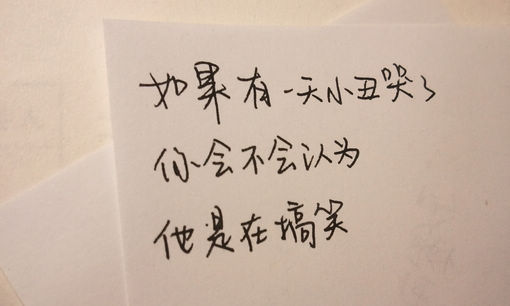 如果有一天小丑哭了
你会不会认为
他是在搞笑